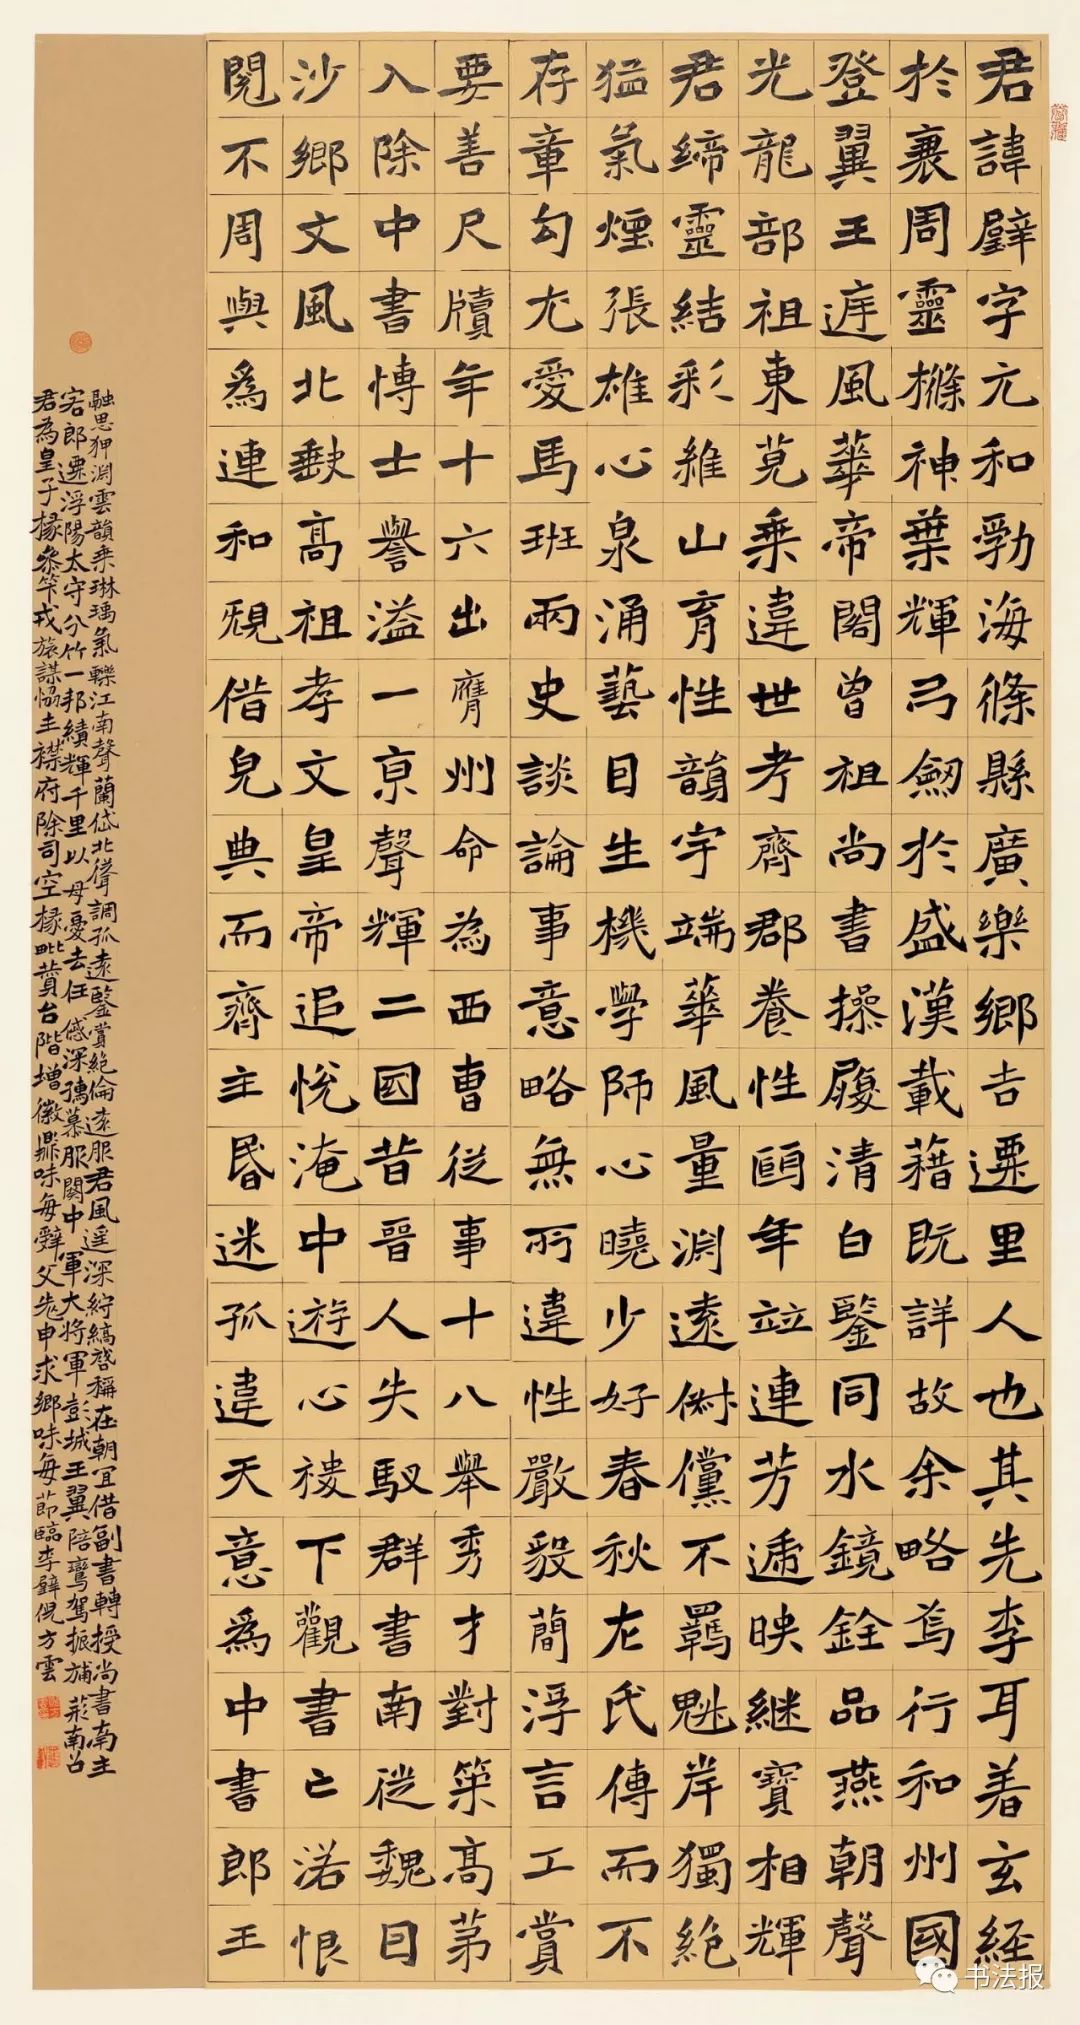 君諱璧字元和勃海條縣廣樂鄉吉遷里人也其先李耳著玄經
於衰周靈機神葉輝弓劒於盛漢載藉既詳故余略焉行和州國
登翼王遅風華帝閣曾祖尚書操履清白鑒同水鏡銓品燕朝聲
光龍部祖東莧乘違世考齊郡養性頤年竝連芳遞映継寶相輝
君締靈結彩維山育性韻宇端華風量淵遠儵儻不羈魁岸獨絶
猛氣煙張雄心泉涌藝目生機學師心曉少好春秋左氏傳而不
存章勾尤愛馬班兩史談論事意略無所違性嚴毅簡浮言工賞
要善尺牘年十六出膺州命為西曹從事十八舉秀才對策高第
入除中書博士譽溢一京聲輝二國昔晉人失馭群書南從魏目
沙鄉文風北缺高祖孝文皇帝追悅淹中遊心稷下觀書亡落恨
閱不周與為連和規借完典而齊主昏迷孤違天意為中書郎王
融思狎淵雲韻乘琳瑀氣轢江南聲蘭岱北聳調孤遠鑒賞絕倫遠服君風遥深紵縞啓稱在朝宜借副書轉授尚書南主
客郎遷浮陽太守分竹一邦績輝千里以母憂去任感深孺慕服闋中軍大將軍彭城王翼陪鸞駕振旆荥南召
君為皇子掾參竿戎旅謀協主襟府除司空掾毗贊台階增徽鼎味每辭父老申求鄉味每 節臨李璧倪方雲
书法报